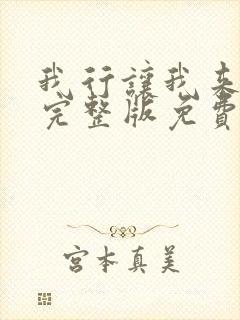 我行讓我来
完整版免費
宮本真美